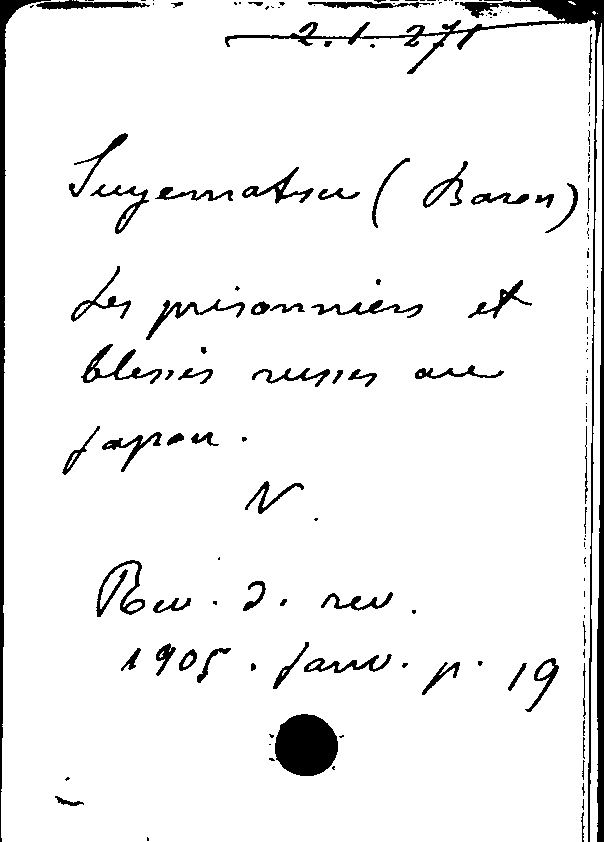 2.1.271
Suyematsu (Baron)
Les prisonniers et
blessés russes au
Japon.
N.
Rev. d. rev.
1905. janv. p. 19